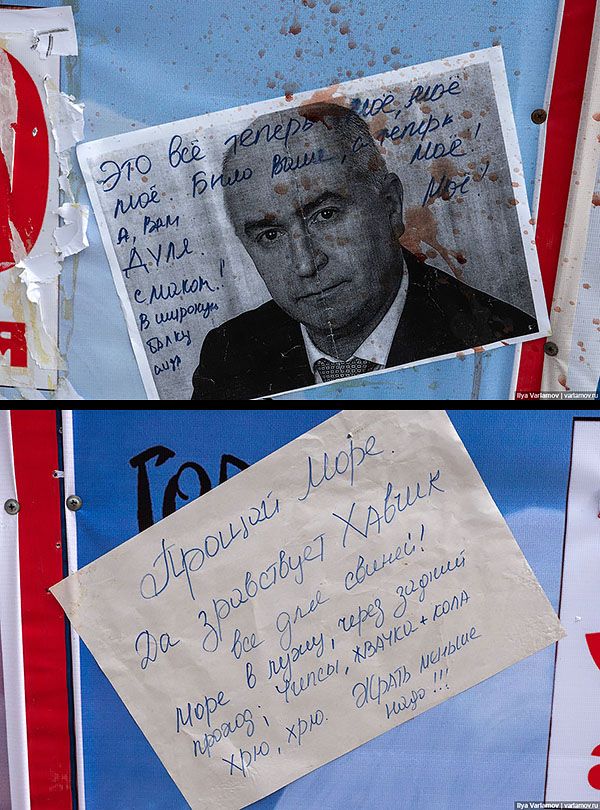 Это всё теперь моё, моё
моё. Было ваше, а теперь
моё!
Моё!
А, вам
ДУЛЯ.
с маком!
В широкую
балку
я
Ilya Varlamov | varlamov.ru
Гол
Прощай море.
Да здравствует Хавчик
все для свиней!
Море в лужу, через задний
проход; Чипсы, жвачка + кола
хрю, хрю. Жрать меньше
надо!!!
Ilya Varlamov | varlamov.ru